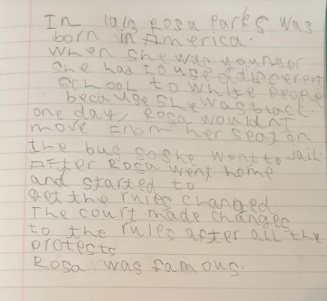 In 1913 Rosa Parks was
born in America.
When she was younger
she has to use a different
school to white people
because she was black
one day Rosa wouldn't
move from her seat on
the bus so she went to Jail.
After Rosa went home
and started to
get the rules changed
The court made changes
to the rules after all the
protests
Rosa was famous.